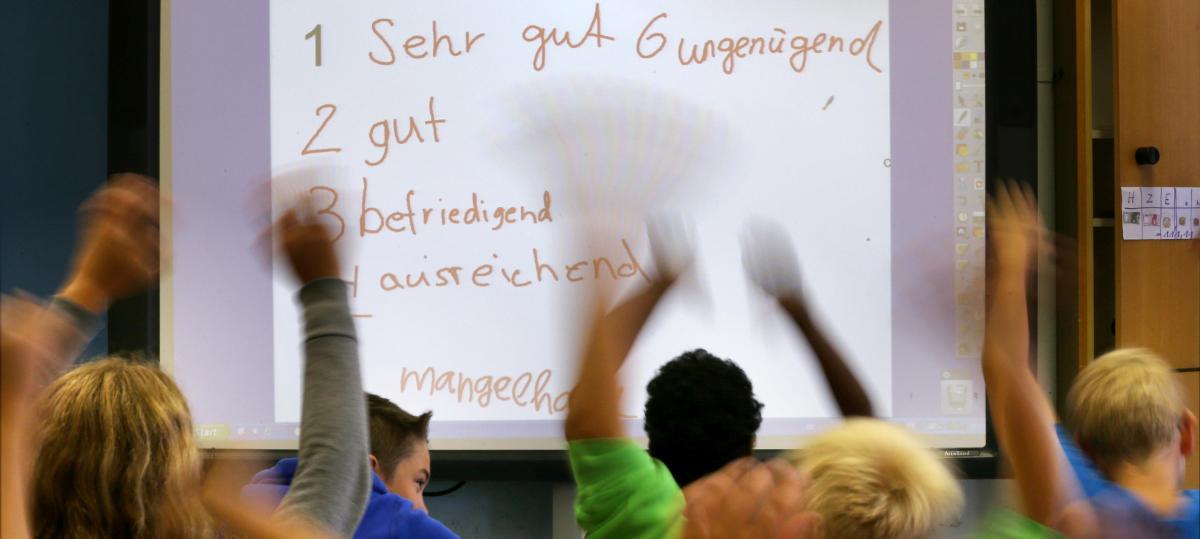 1 Sehr gut 6 ungenügend
2 gut
3 befriedigend
ausreichend
Start
H Z E